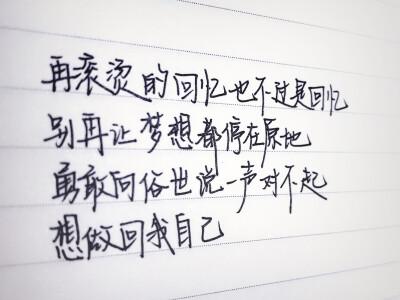 再滚烫的回忆也不过是回忆
别再让梦想都停在原地
勇敢向俗世说一声对不起
想做回我自己